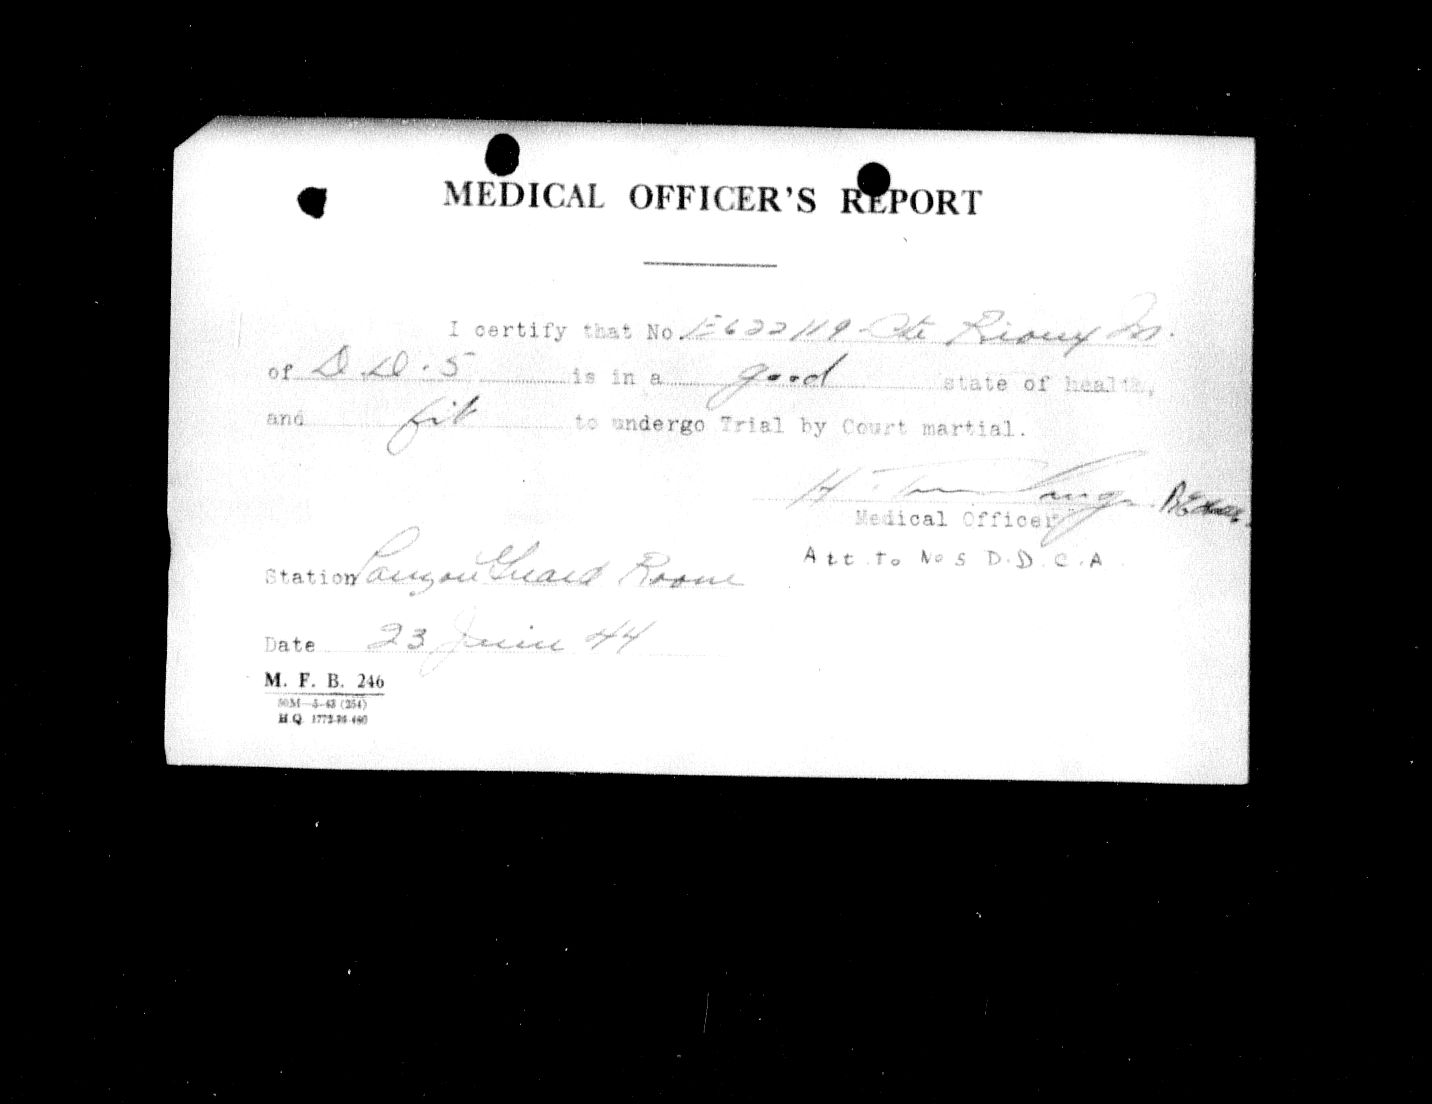 MEDICAL OFFICER'S REPORT
I certify that No. E622119 Pte Rioux M.
of D.D.5 is in a good state of health,
and fit to undergo Trial by Court martial.
H.
Medical Officer
Att. To No 5 D.D.C.A.
Station Guard Room
Date 23 Juin 44
M. F. B. 246
50M—5-43 (254)
H.Q. 1772-39-460